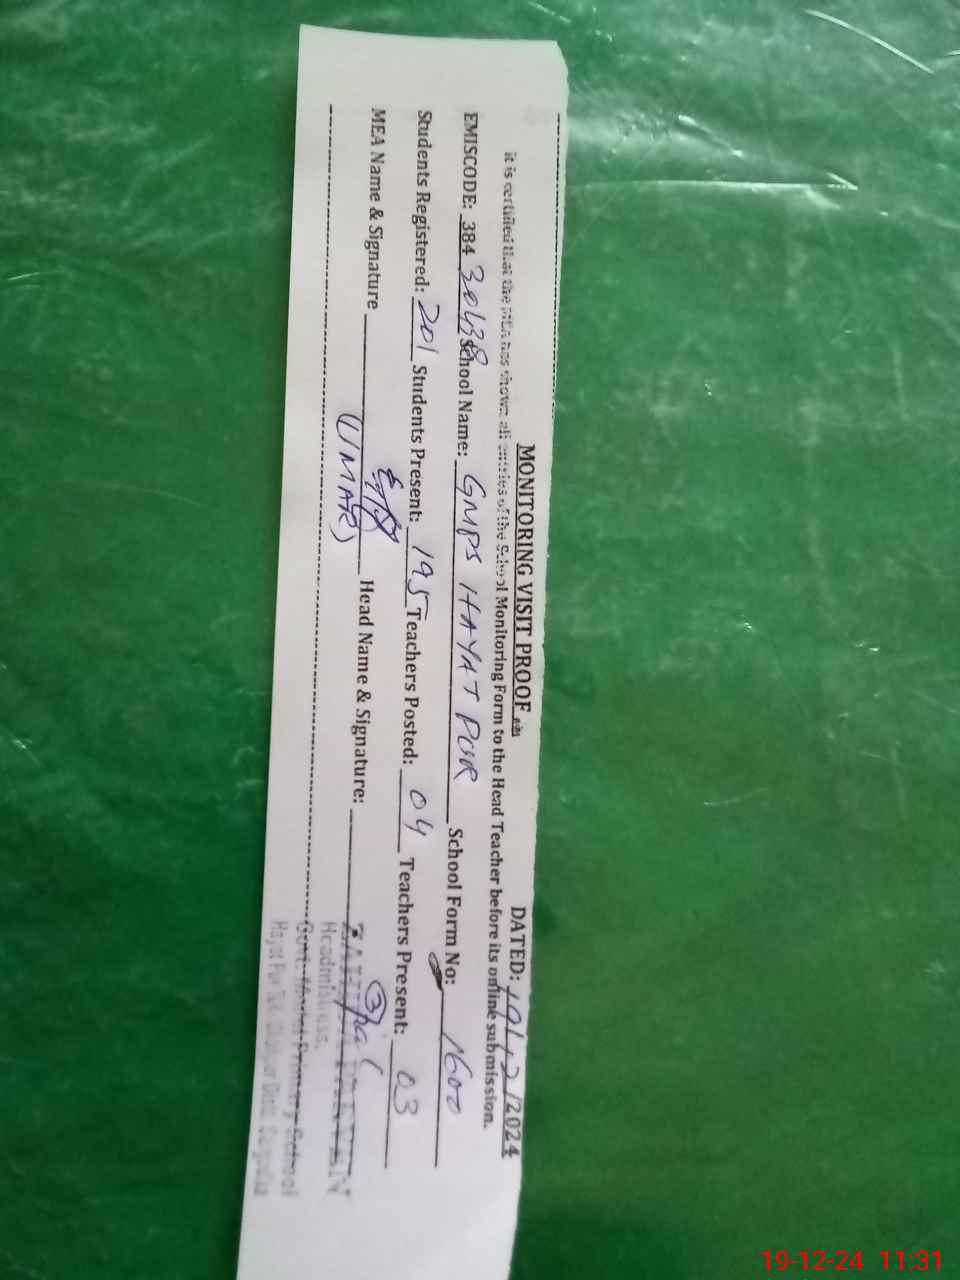 MONITORING VISIT PROOF DATED: 19/12/2024
it is certified that the MEA has shown all entries of the School Monitoring Form to the Head Teacher before its online submission.
EMISCODE: 384 30438 School Name: GMPS HAYAT PUR School Form No: 1600
Students Registered: 201 Students Present: 195 Teachers Posted: 04 Teachers Present: 03
MEA Name & Signature Head Name & Signature:
(UMAR)
PARVEEN
Headmistress,
Govt: Model Primary School
Hayat Pur
19-12-24 11:31